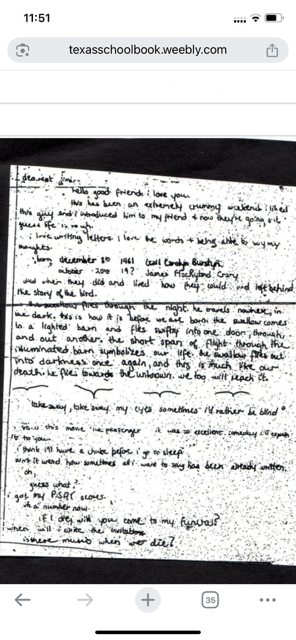 11:51
texasschoolbook.weebly.com
dearest
hello good friend i love you.
this has been an extremely crummy weekend i liked
this guy and i introduced him to my friend & now they're going out
guess life is rough.
i love writing letters i love the words & being able to say my
thoughts.
born december 1961
october
died when they did and lived how they could. and left behind
the story of the bird.
flies through the night. he travels nowhere, in
the dark, this is how it is before we are born. the swallow comes
to a lighted barn and flies swiftly into one door, through,
and out another. the short span of flight through the
illuminated barn symbolizes our life. the swallow flies out
into darkness once again, and this is much like our
death. he flies towards the unknown. we too will reach it.
take away, take away my eyes, sometimes i'd rather be blind
saw this movie the passenger it was so excellent. someday i'll explain
it to you.
think i'll have a smoke before i go to sleep
ain't it weird how sometimes all i want to say has been already written.
oh,
guess what?
i got my PSAT scores
i'm a number now.
if i die, will you come to my funeral?
when will i write the invitations
is there music when we die?
35